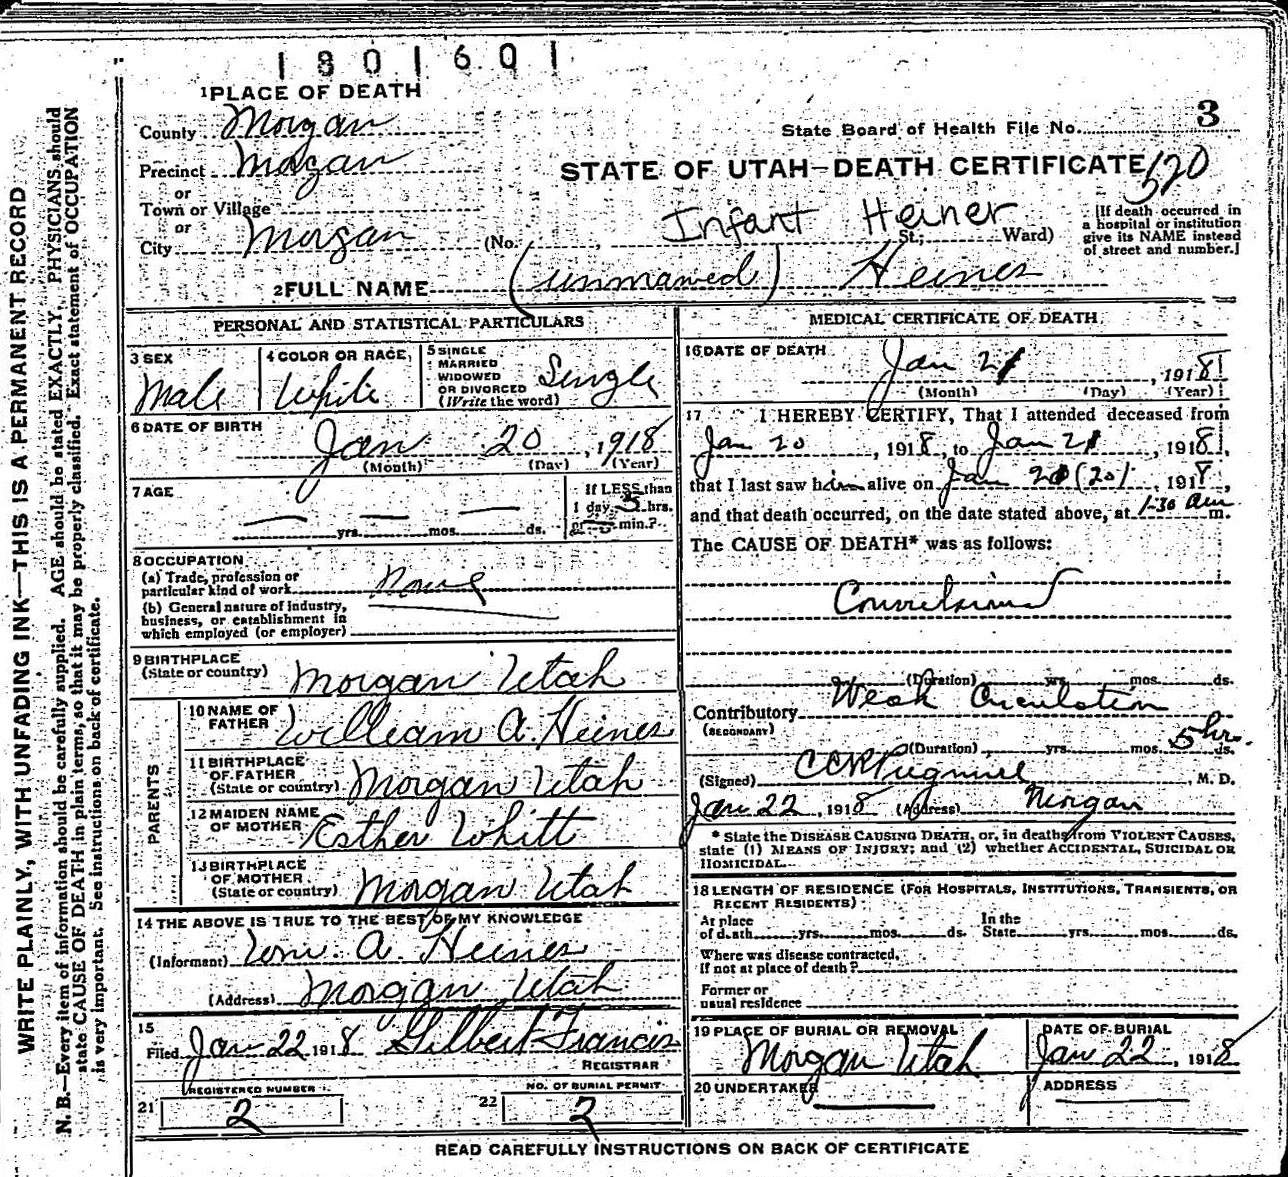 1801601
1 PLACE OF DEATH
County Morgan
State Board of Health File No. 3
Precinct Morgan
STATE OF UTAH—DEATH CERTIFICATE 520
or
Town or Village
or
City Morgan (No. , St.; Ward)
Infant Heiner
[If death occurred in a hospital or institution give its NAME instead of street and number.]
2 FULL NAME (unnamed) Heiner
PERSONAL AND STATISTICAL PARTICULARS
3 SEX Male
4 COLOR OR RACE, White
5 SINGLE MARRIED WIDOWED OR DIVORCED (Write the word) Single
6 DATE OF BIRTH
Jan 20, 1918
(Month) (Day) (Year)
7 AGE
— yrs. — mos. — ds.
If LESS than
1 day, 5 hrs.
or — min.?
8 OCCUPATION
(a) Trade, profession or
particular kind of work None
(b) General nature of industry,
business, or establishment in
which employed (or employer)
9 BIRTHPLACE
(State or country) Morgan Utah
PARENTS
10 NAME OF
FATHER William A. Heiner
11 BIRTHPLACE
OF FATHER
(State or country) Morgan Utah
12 MAIDEN NAME
OF MOTHER Esther Whitt
13 BIRTHPLACE
OF MOTHER
(State or country) Morgan Utah
14 THE ABOVE IS TRUE TO THE BEST OF MY KNOWLEDGE
(Informant) Wm. A. Heiner
(Address) Morgan Utah
15
Filed Jan 22 1918 Gilbert Francis
REGISTRAR
REGISTERED NUMBER
21 2
NO. OF BURIAL PERMIT
22 2
MEDICAL CERTIFICATE OF DEATH
16 DATE OF DEATH
Jan 21, 1918
(Month) (Day) (Year)
17 I HEREBY CERTIFY, That I attended deceased from
Jan 20, 1918, to Jan 21, 1918,
that I last saw him alive on Jan 20 (20), 1918,
and that death occurred, on the date stated above, at 1-30 am.
The CAUSE OF DEATH* was as follows:
Convulsions
(Duration) yrs. mos. ds.
Contributory Weak Circulation
(SECONDARY)
(Duration) yrs. mos. 5 hr. ds.
(Signed) M. D.
Jan 22, 1918 (Address) Morgan
* State the DISEASE CAUSING DEATH, or, in deaths from VIOLENT CAUSES,
state (1) MEANS OF INJURY; and (2) whether ACCIDENTAL, SUICIDAL OR
HOMICIDAL.
18 LENGTH OF RESIDENCE (FOR HOSPITALS, INSTITUTIONS, TRANSIENTS, OR
RECENT RESIDENTS)
At place In the
of death yrs. mos. ds. State yrs. mos. ds.
Where was disease contracted,
If not at place of death?
Former or
usual residence
19 PLACE OF BURIAL OR REMOVAL
Morgan Utah
DATE OF BURIAL
Jan 22, 1918
20 UNDERTAKER —
ADDRESS —
READ CAREFULLY INSTRUCTIONS ON BACK OF CERTIFICATE
WRITE PLAINLY, WITH UNFADING INK—THIS IS A PERMANENT RECORD
N. B.—Every item of information should be carefully supplied. AGE should be stated EXACTLY. PHYSICIANS should
state CAUSE OF DEATH in plain terms, so that it may be properly classified. Exact statement of OCCUPATION
is very important. See instructions on back of certificate.